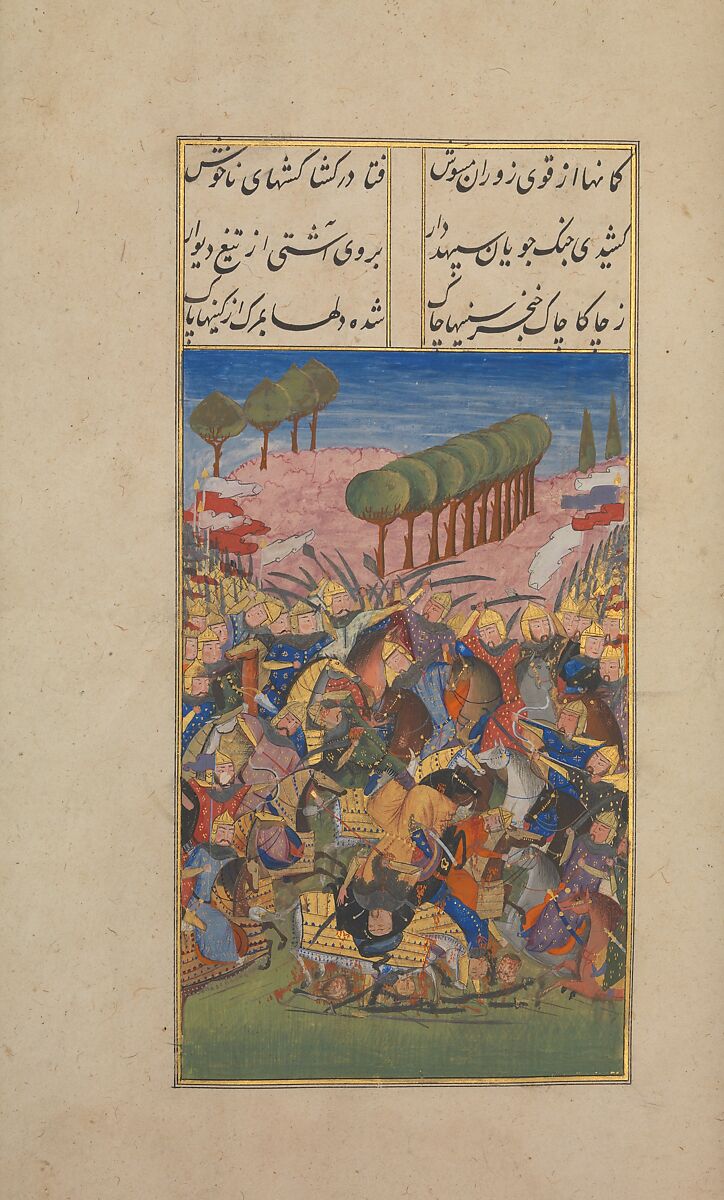 کمانها از قوی زوران سرکش فتا در کشا کشهای ناخوش
کشیدی جنگ جویان سپهدار بروی آشتی از تیغ دیوار
ز چاکا چاک خنجر سینها چاک شده دلها بمرک از کینها پاک